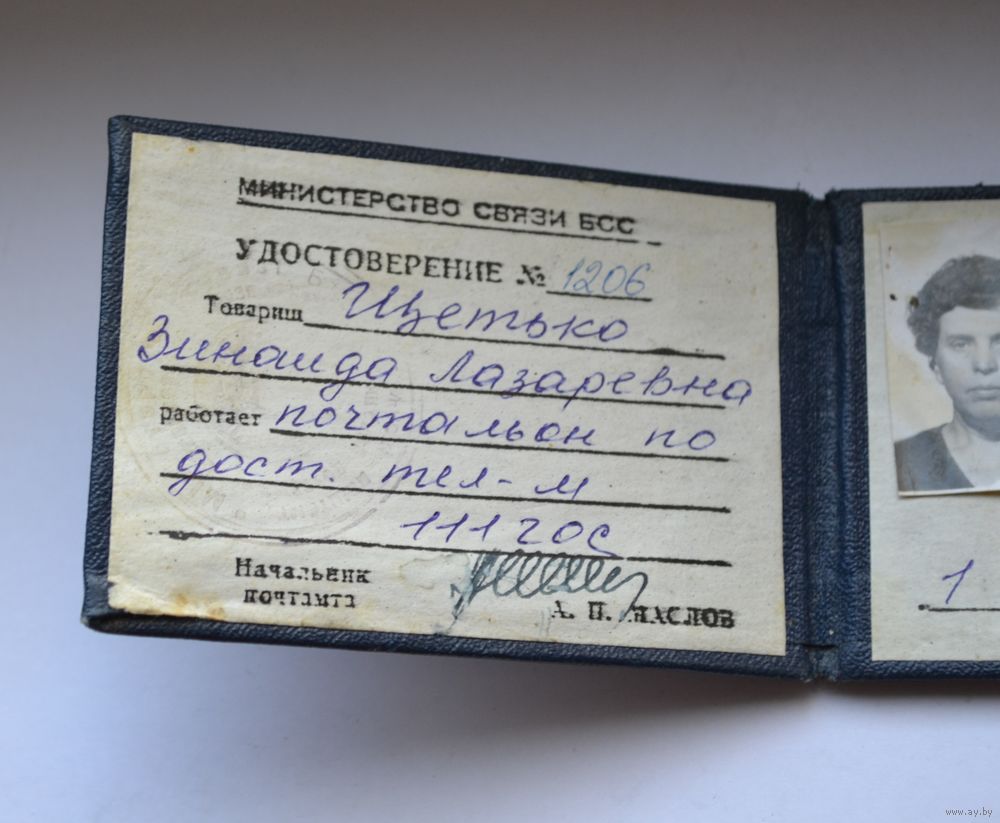 МИНИСТЕРСТВО СВЯЗИ БСС
УДОСТОВЕРЕНИЕ № 1206
Товарищ Щетько
Зинаида Лазаревна
работает почтальон по
дост. тел-м
111 гос
Начальник
почтамта
А. П. МАСЛОВ
1
www.ay.by